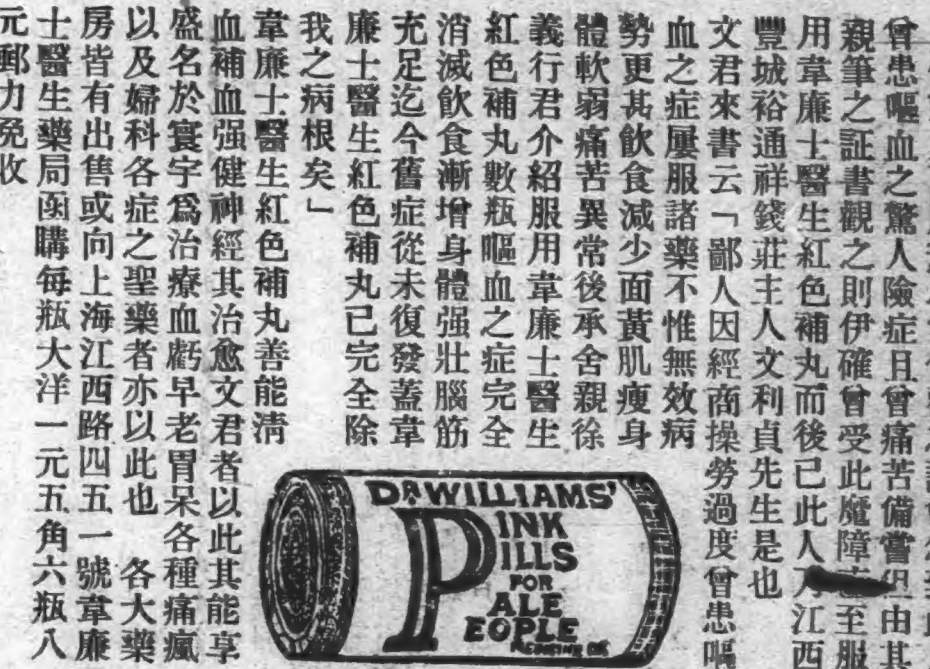 曾患嘔血之驚人險症且曾痛苦備嘗但由其
親筆之証書觀之則伊確曾受此魔障至服
用韋廉士醫生紅色補丸而後已此人乃江西
豐城裕通祥錢莊主人文利貞先生是也
文君來書云「鄙人因經商操勞過度曾患嘔
血之症屢服諸藥不惟無效病
勢更甚飲食減少面黃肌瘦身
體軟弱痛苦異常後承舍親徐
義行君介紹服用韋廉士醫生
紅色補丸數瓶嘔血之症完全
消滅飲食漸增身體强壯腦筋
充足迄今舊症從未復發蓋韋
廉士醫生紅色補丸已完全除
我之病根矣」
韋廉士醫生紅色補丸善能清
血補血强健神經其治愈文君者以此其能享
盛名於寰宇爲治療血虧早老胃呆各種痛瘋
以及婦科各症之聖藥者亦以此也 各大藥
房皆有出售或向上海江西路四五一號韋廉
士醫生藥局函購每瓶大洋一元五角六瓶八
元郵力免收
DR WILLIAMS'
PINK
PILLS
FOR
PALE
PEOPLE